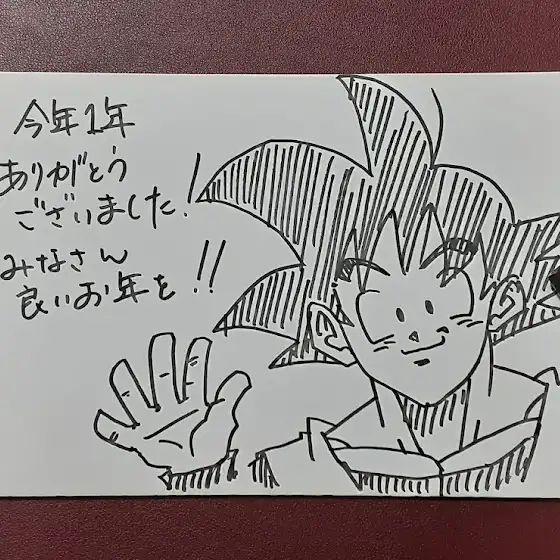 今年1年
ありがとう
ございました!
みなさん
良いお年を!!